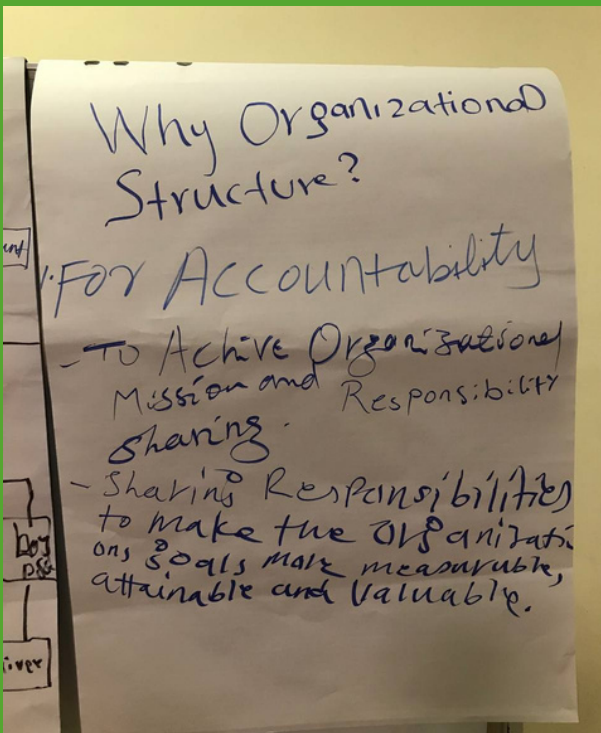 Why Organizational
Structure?
1. For Accountability
- To Achive Organizational
Mission and Responsibility
sharing.
- Sharing Responsibilities
to make the Organizati
ons goals more measurable,
attainable and Valuable.